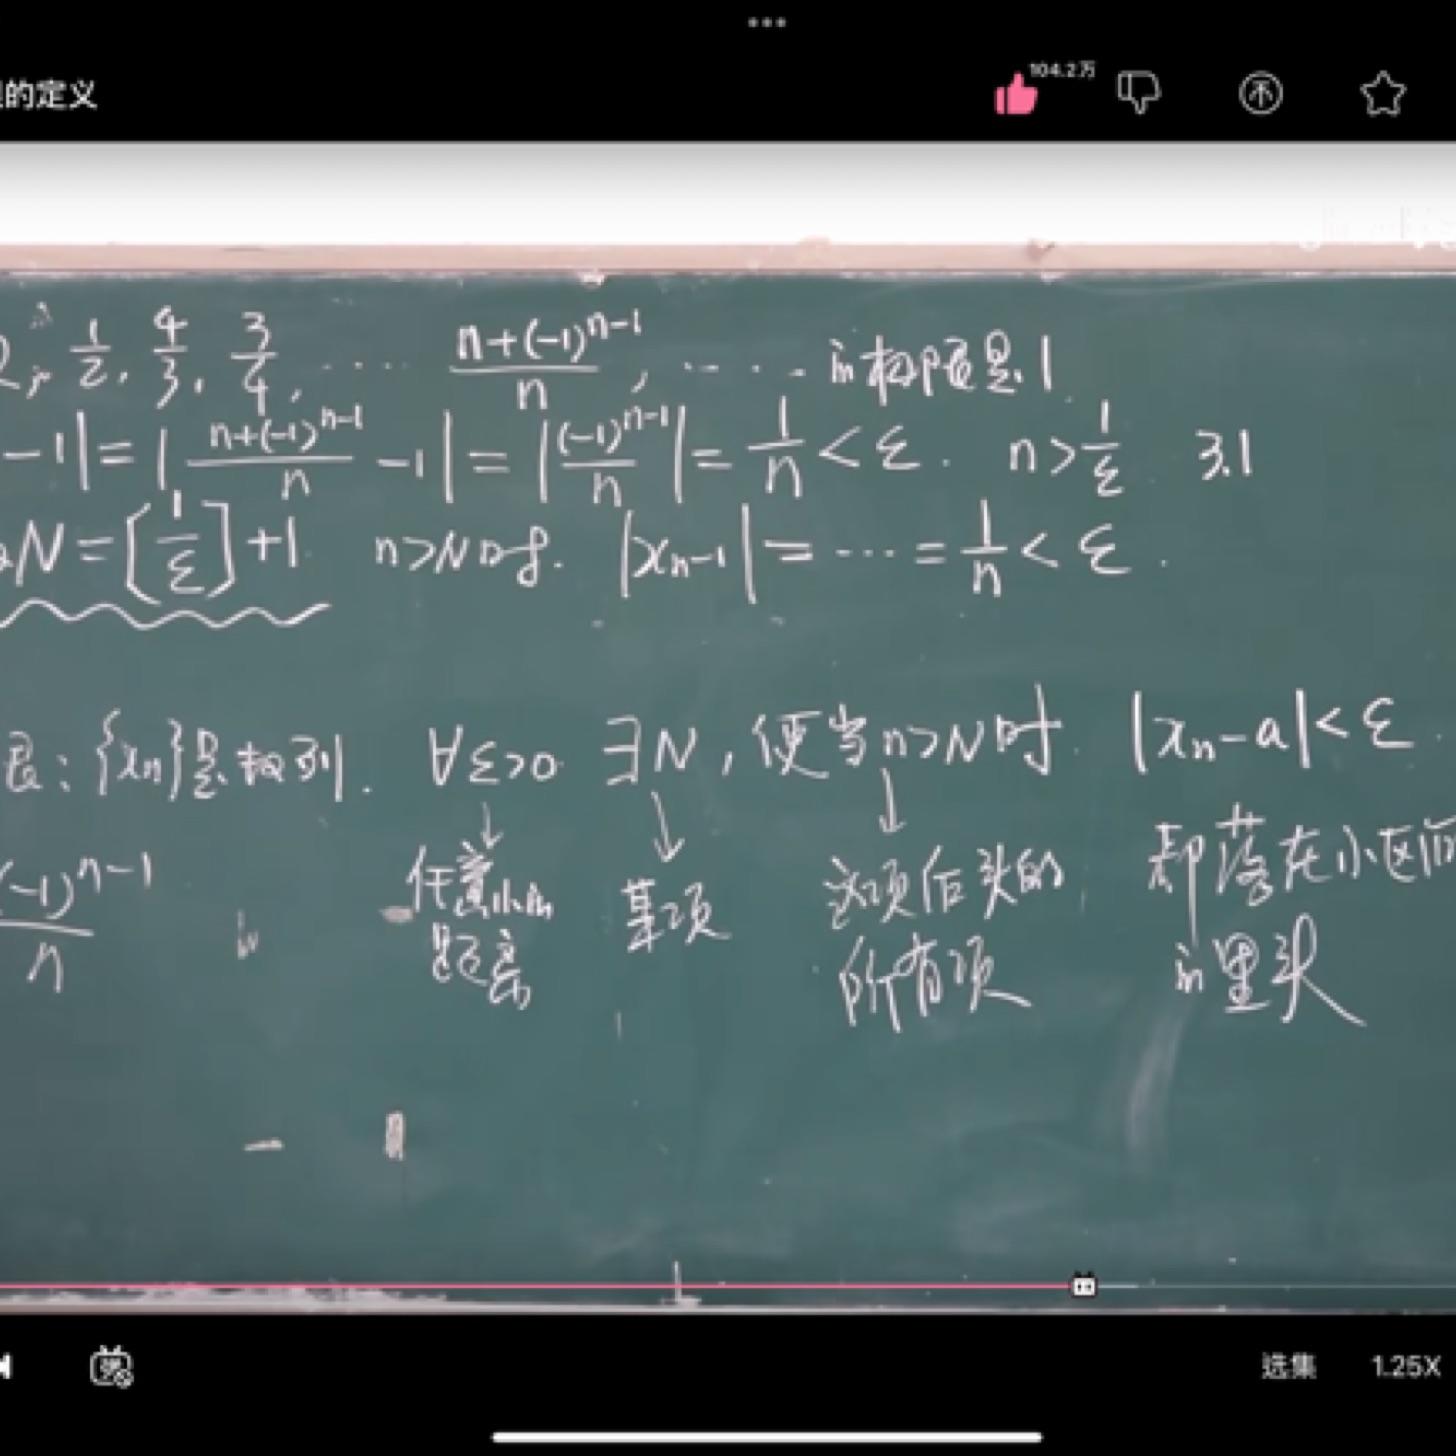 的定义
104.2万
2, 1/2, 4/3, 3/4, ···· (n+(-1)^{n-1})/n, ···· 的极限是1
-1|=|(n+(-1)^{n-1})/n -1|=|(-1)^{n-1}/n|=1/n<ε. n>1/ε 3.1
N=[1/ε]+1 n>N时. |x_n-1|=···=1/n<ε.
限:{x_n}是数列. ∀ε>0 ∃N,使当n>N时. |x_n-a|<ε.
(-1)^{n-1}/n
任意小的距离
某项
这项后头的所有项
都落在小区间的里头
选集 1.25X